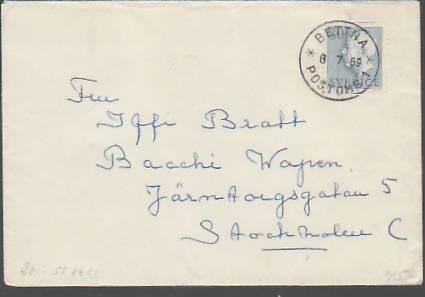 * BETTNA *
6 7 59
POSTOMB 1
SVERIGE
Fru
Iffi Bratt
Bacchi Wapen
Järntorgsgatan 5
Stockholm C